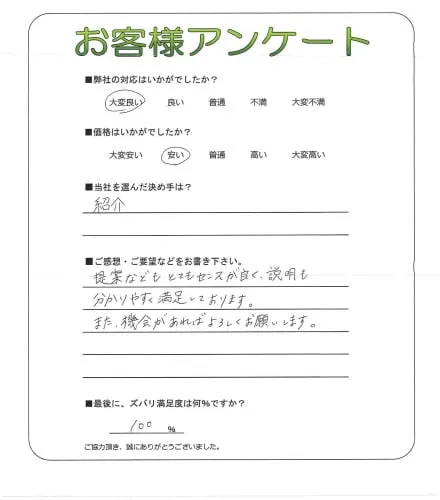 お客様アンケート
■弊社の対応はいかがでしたか？
大変良い 良い 普通 不満 大変不満
■価格はいかがでしたか？
大変安い 安い 普通 高い 大変高い
■当社を選んだ決め手は？
紹介
■ご感想・ご要望などをお書き下さい。
提案なども とてもセンスが良く、説明も
分かりやすく満足しております。
また、機会があればよろしくお願いします。
■最後に、ズバリ満足度は何％ですか？
100 ％
ご協力頂き、誠にありがとうございました。